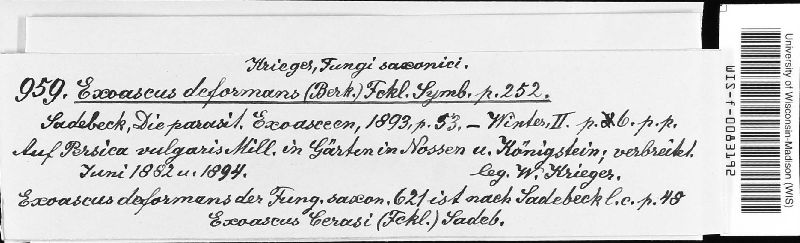 Krieger, Fungi saxonici.
959. Exoascus deformans (Berk.) Fckl. Symb. p. 252.
Sadebeck, Die parasit. Exoasceen, 1893, p. 53. – Winter, II. p. 6. p. p.
Auf Persica vulgaris Mill. in Gärten in Nossen u. Königstein; verbreitet.
Juni 1882 u. 1894. leg. W. Krieger.
Exoascus deformans der Fung. saxon. 621 ist nach Sadebeck l. c. p. 48
Exoascus Cerasi (Fckl.) Sadeb.
University of Wisconsin-Madison (WIS)
WIS-f-0003162